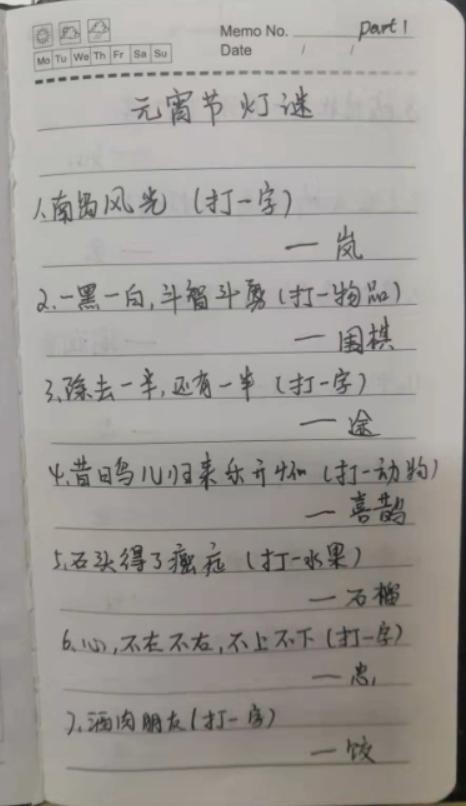 Memo No. part 1
Mo Tu We Th Fr Sa Su
Date / /
元宵节灯谜
1.南岛风光(打一字)
—岚
2.一黑一白,斗智斗勇(打一物品)
—围棋
3.除去一半,还有一半(打一字)
—途
4.昔日鸟儿归来乐开怀(打一动物)
—喜鹊
5.石头得了瘤症(打一水果)
—石榴
6.心,不在不右,不上不下(打一字)
—忠
7.酒肉朋友(打一字)
—饺